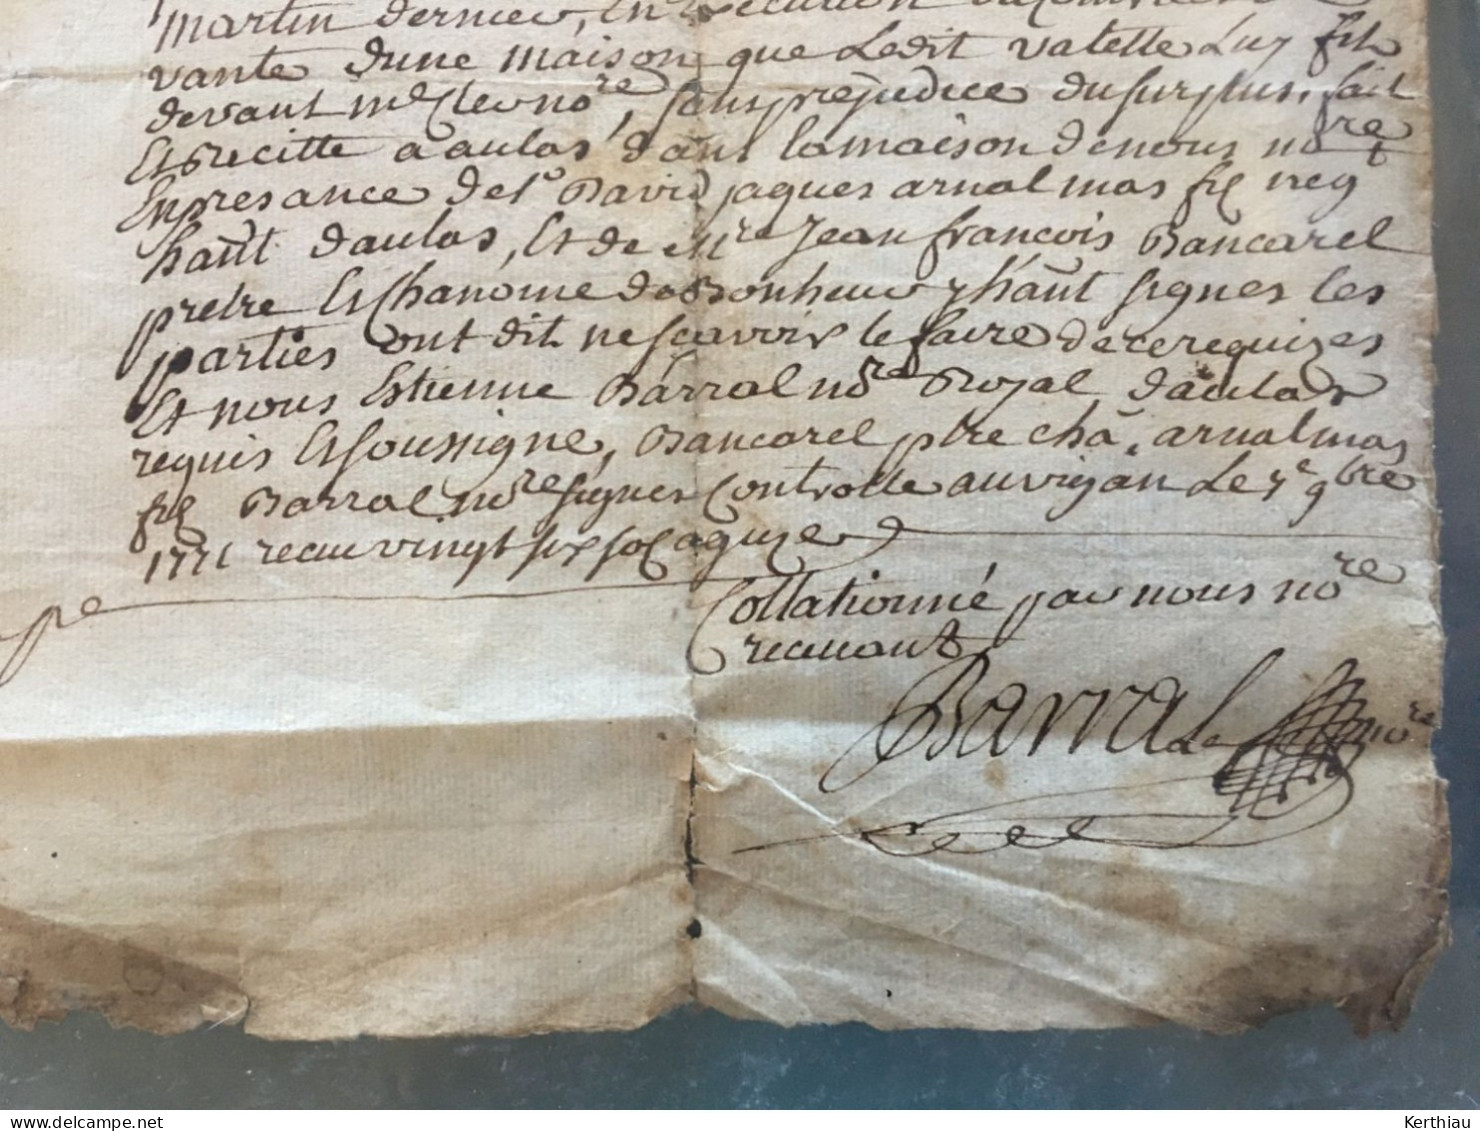 martin dernier, en execution
vante dune maison que Ledit valette Luy fit
devant me Clet nore, sans prejudice du surplus, fait
Et Recitte a aulas dans la maison de nous nore
En presance de sr David jaques arnal mas fil neg
hant daulas, Et de mre Jean francois Bancarel
pretre Et Chanoine de Bonheur yhant signes les
parties ont dit ne scavoir le faire de ce requizes
Et nous Estienne Barral nore Royal daulas
requis Et soussigne, Bancarel ptre cha, arnal mas
fil Barral nore signes Controlle au vigan Le 7e 9bre
1771 receu vingt six sols aguze
Collationné par nous nore
recevant
Barral nore
Kerthiau